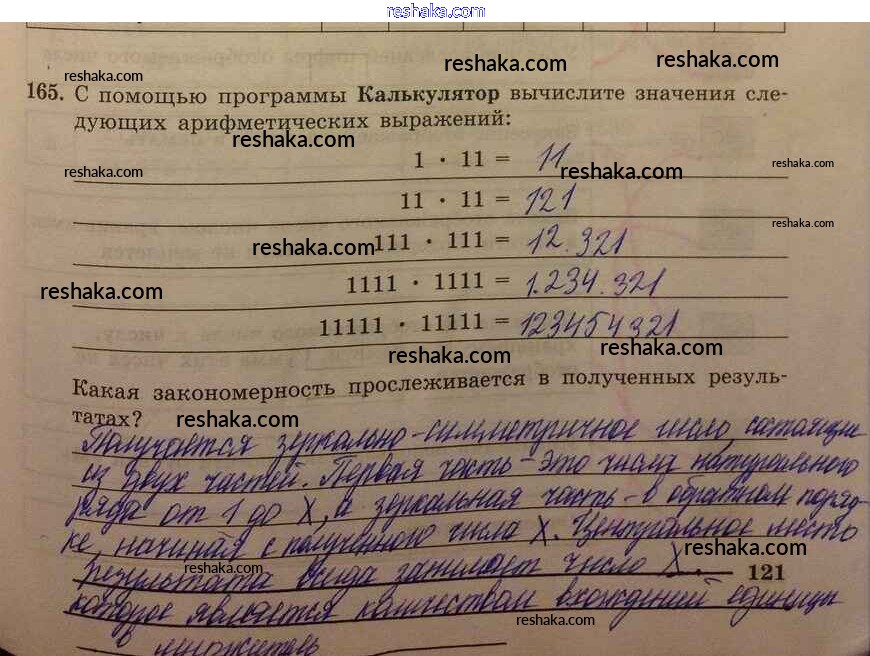 reshaka.com
reshaka.com
reshaka.com
reshaka.com
165. С помощью программы Калькулятор вычислите значения сле-
дующих арифметических выражений:
reshaka.com
1 · 11 = 11
reshaka.com
reshaka.com
reshaka.com
11 · 11 = 121
reshaka.com
111 · 111 = 12.321
reshaka.com
1111 · 1111 = 1.234.321
reshaka.com
11111 · 11111 = 123454321
reshaka.com
reshaka.com
Какая закономерность прослеживается в полученных резуль-
татах?
reshaka.com
Получается зеркально-симметричное число, состоящие
из двух частей. Первая часть - это числа натурального
ряда от 1 до X, а зеркальная часть - в обратном поряд-
reshaka.com
ке, начиная с полученного числа X. Центральное место
reshaka.com
результата всегда занимает число X,
reshaka.com
121
которое является количеством вхождений единицы
reshaka.com
в множитель